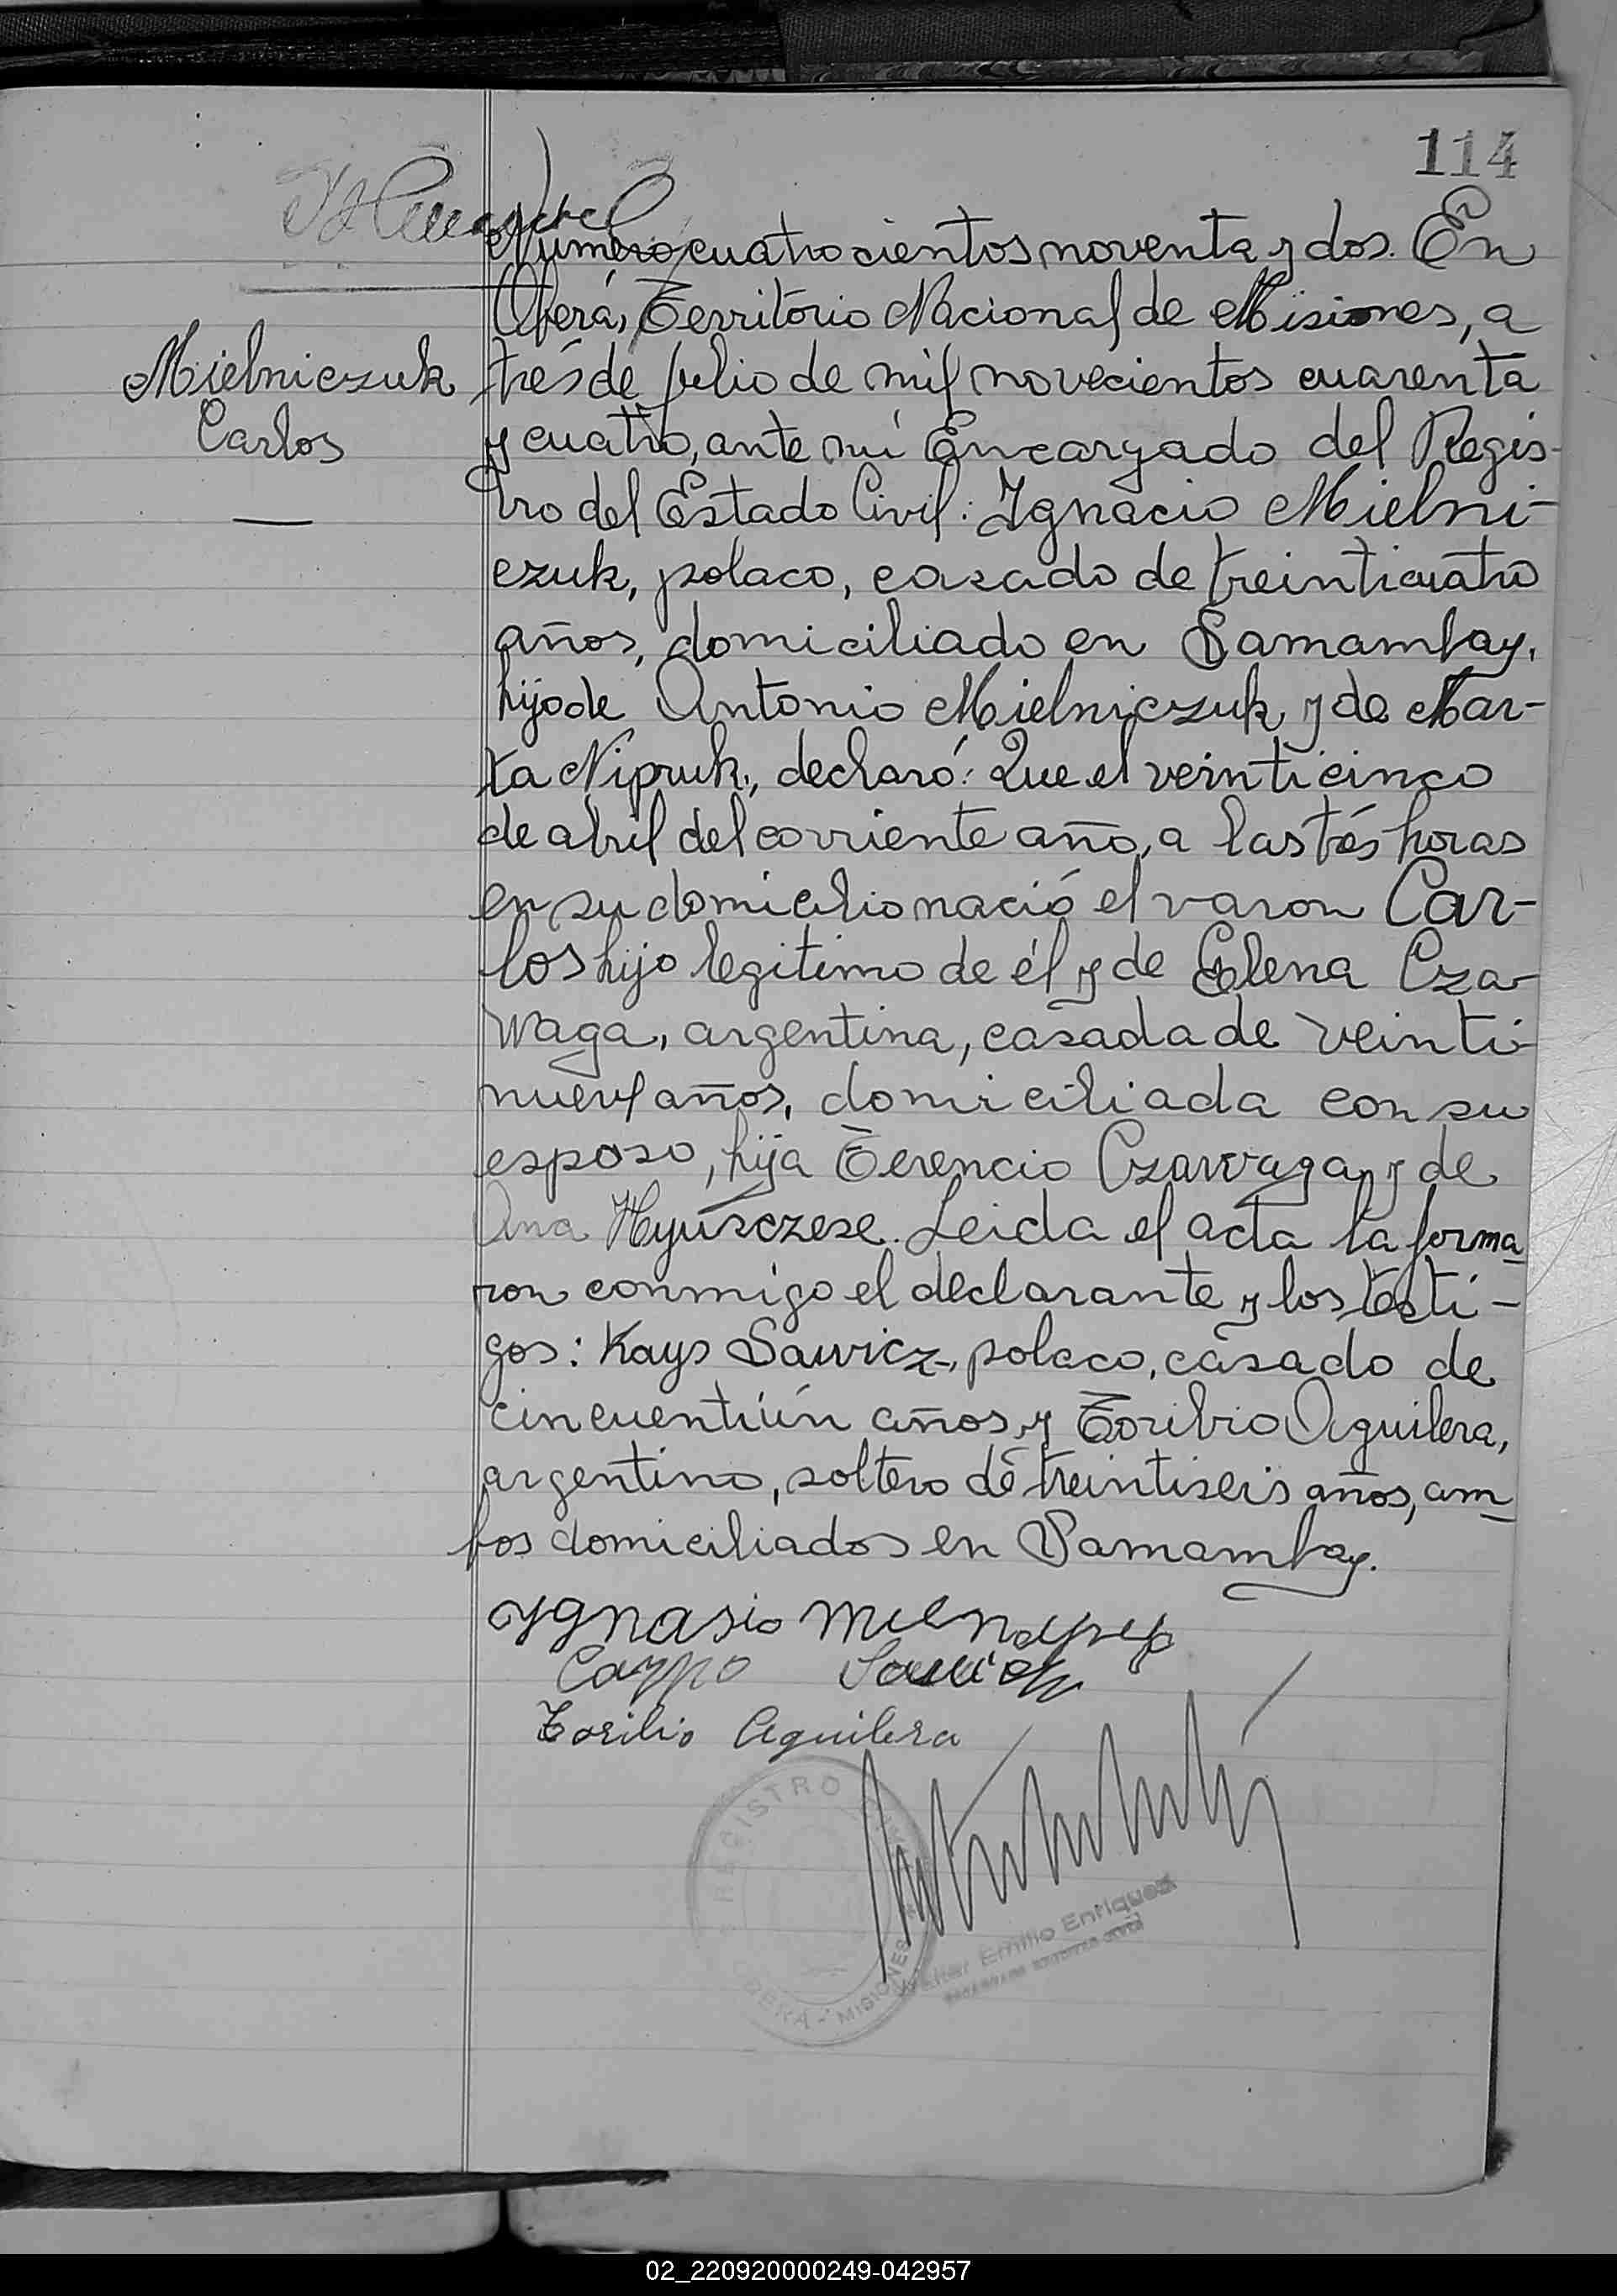 114
Numero cuatrocientos noventa y dos. En
Oberá, Territorio Nacional de Misiones, a
Mielniczuk
Carlos
trés de julio de mil novecientos cuarenta
y cuatro, ante mi Encargado del Regis-
tro del Estado Civil: Ignacio Mielni-
czuk, polaco, casado de treinticuatro
años, domiciliado en Samambay,
hijo de Antonio Mielniczuk y de Mar-
ta Nipruk, declaró: Que el veinticinco
de abril del corriente año, a las trés horas
en su domicilio nació el varon Car-
los hijo legitimo de él y de Elena Cza-
waga, argentina, casada de veinti-
nueve años, domiciliada con su
esposo, hija Terencio Czawaga y de
Ana Hyusczese. Leida el acta la forma
ron conmigo el declarante y los testi-
gos: Kays Sawicz, polaco, casado de
cincuentiún años y Toribio Aguilera,
argentino, soltero de treintiseis años, am
bos domiciliados en Samambay.
Ygnasio
Carpo
Toribio Aguilera
REGISTRO
OBERA - MISIONES
Emilio Enriquez
02_220920000249-042957